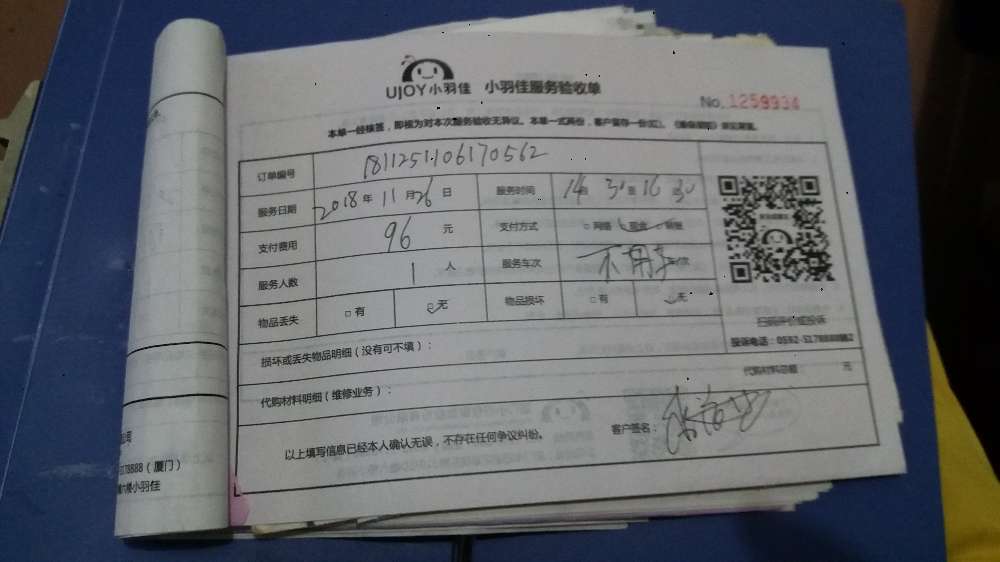 UJOY小羽佳 小羽佳服务验收单
No. 1259934
本单一经核签，即视为对本次服务验收无异议。本单一式两份，客户留存一份
订单编号 181125110617056​2
服务日期 2018年 11月26日 服务时间 14 30至16 30
支付费用 96 元 支付方式 □网络 现金 □
服务人数 1 人 服务车次 不用车
物品丢失 □有 □无 物品损坏 □有 无
扫码评价或投诉
损坏或丢失物品明细（没有可不填）：
投诉电话：0592-5178888
代购材料明细（维修业务）： 代购材料总额 元
以上填写信息已经本人确认无误，不存在任何争议纠纷。 客户签名：
司
78888（厦门）
小羽佳